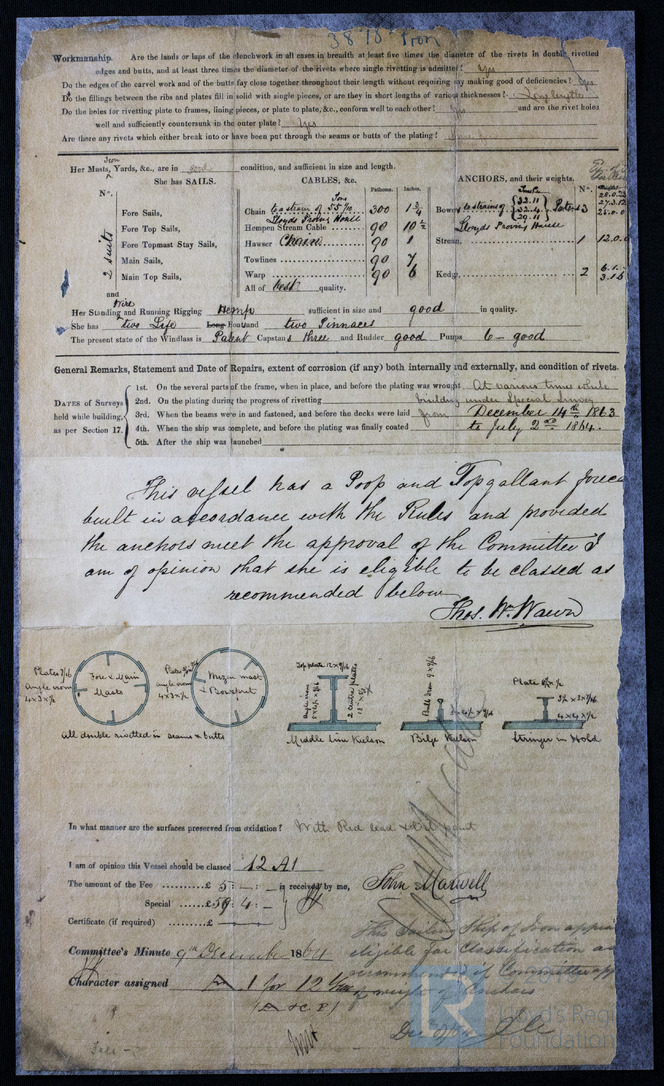 3878 Iron
Workmanship. Are the lands or laps of the clenchwork in all cases in breadth at least five times the diameter of the rivets in double rivetted
edges and butts, and at least three times the diameter of the rivets where single rivetting is admitted? Yes
Do the edges of the carvel work and of the butts fay close together throughout their length without requiring any making good of deficiencies? Yes
Do the fillings between the ribs and plates fill in solid with single pieces, or are they in short lengths of various thicknesses? Long lengths
Do the holes for rivetting plate to frames, lining pieces, or plate to plate, &c., conform well to each other? Yes and are the rivet holes
well and sufficiently countersunk in the outer plate? Yes
Are there any rivets which either break into or have been put through the seams or butts of the plating?
Iron
Her Masts, Yards, &c., are in good condition, and sufficient in size and length.
She has SAILS. CABLES, &c. ANCHORS, and their weights.
No. Fathoms. Inches. No.
Fore Sails, Chain to a strain of 55 7/10 Tons 300 1 3/4
Lloyds Proving House
Fore Top Sails, Hempen Stream Cable 90 10 1/2
Fore Topmast Stay Sails, Hawser Chain 90 1
Main Sails, Towlines 90 7
Main Top Sails, Warp 90 6
and All of best quality.
2 suits
Bowers to strains of 32.11 3
29.11
Lloyds Proving House
Stream 1 12.0.0
Kedge 2
Wire
Her Standing and Running Rigging Hemp sufficient in size and good in quality.
She has two Life Long Boat and two Pinnaces
The present state of the Windlass is Patent Capstans three and Rudder good Pumps 6 - good
General Remarks, Statement and Date of Repairs, extent of corrosion (if any) both internally and externally, and condition of rivets.
DATES of Surveys held while building, as per Section 17.
1st. On the several parts of the frame, when in place, and before the plating was wrought At various times while
2nd. On the plating during the progress of rivetting building under Special Survey
3rd. When the beams were in and fastened, and before the decks were laid from December 14th 1863
4th. When the ship was complete, and before the plating was finally coated to July 2nd 1864.
5th. After the ship was launched
This vessel has a Poop and Topgallant forec
built in accordance with the Rules and provided
the anchors meet the approval of the Committee I
am of opinion that she is eligible to be classed as
recommended below
Thos. W. Wawn
Plates 7/16
Angle iron
Fore & Main
Masts
angle iron
Mizin mast
& Bowsprit
All double rivetted in seams & butts
Top plate
Middle Line Keelson
Bilge Keelson
Plate
Stringer in Hold
In what manner are the surfaces preserved from oxidation? With Red lead & Oil paint
I am of opinion this Vessel should be classed 12 A1
The amount of the Fee ........£ 5 : - : - is received by me,
Special ......£ 59 : 4 : -
John Maxwell
Certificate (if required) ......£
This Sailing Ship of Iron appears
eligible for Classification as
recommended if Committee app
of weight of Anchors
Committee's Minute 9th December 1864
Character assigned A 1 for 12 Yrs
Lloyd's Regi
Foundation